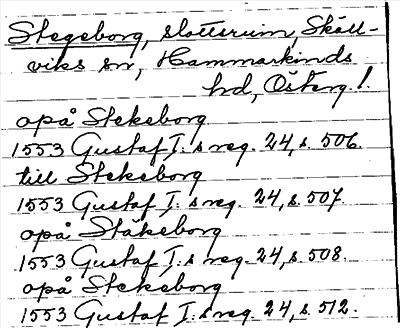 Stegeborg, slottsruin, Skäll-
viks sn, Hammarkinds
hd, Österg.l.
opå Stekeborg
1553 Gustaf I:s reg. 24, s. 506.
till Stekeborg
1553 Gustaf I:s reg. 24, s. 507.
opå Stäkeborg
1553 Gustaf I:s reg. 24, s. 508.
opå Stekeborg
1553 Gustaf I:s reg. 24, s. 512.